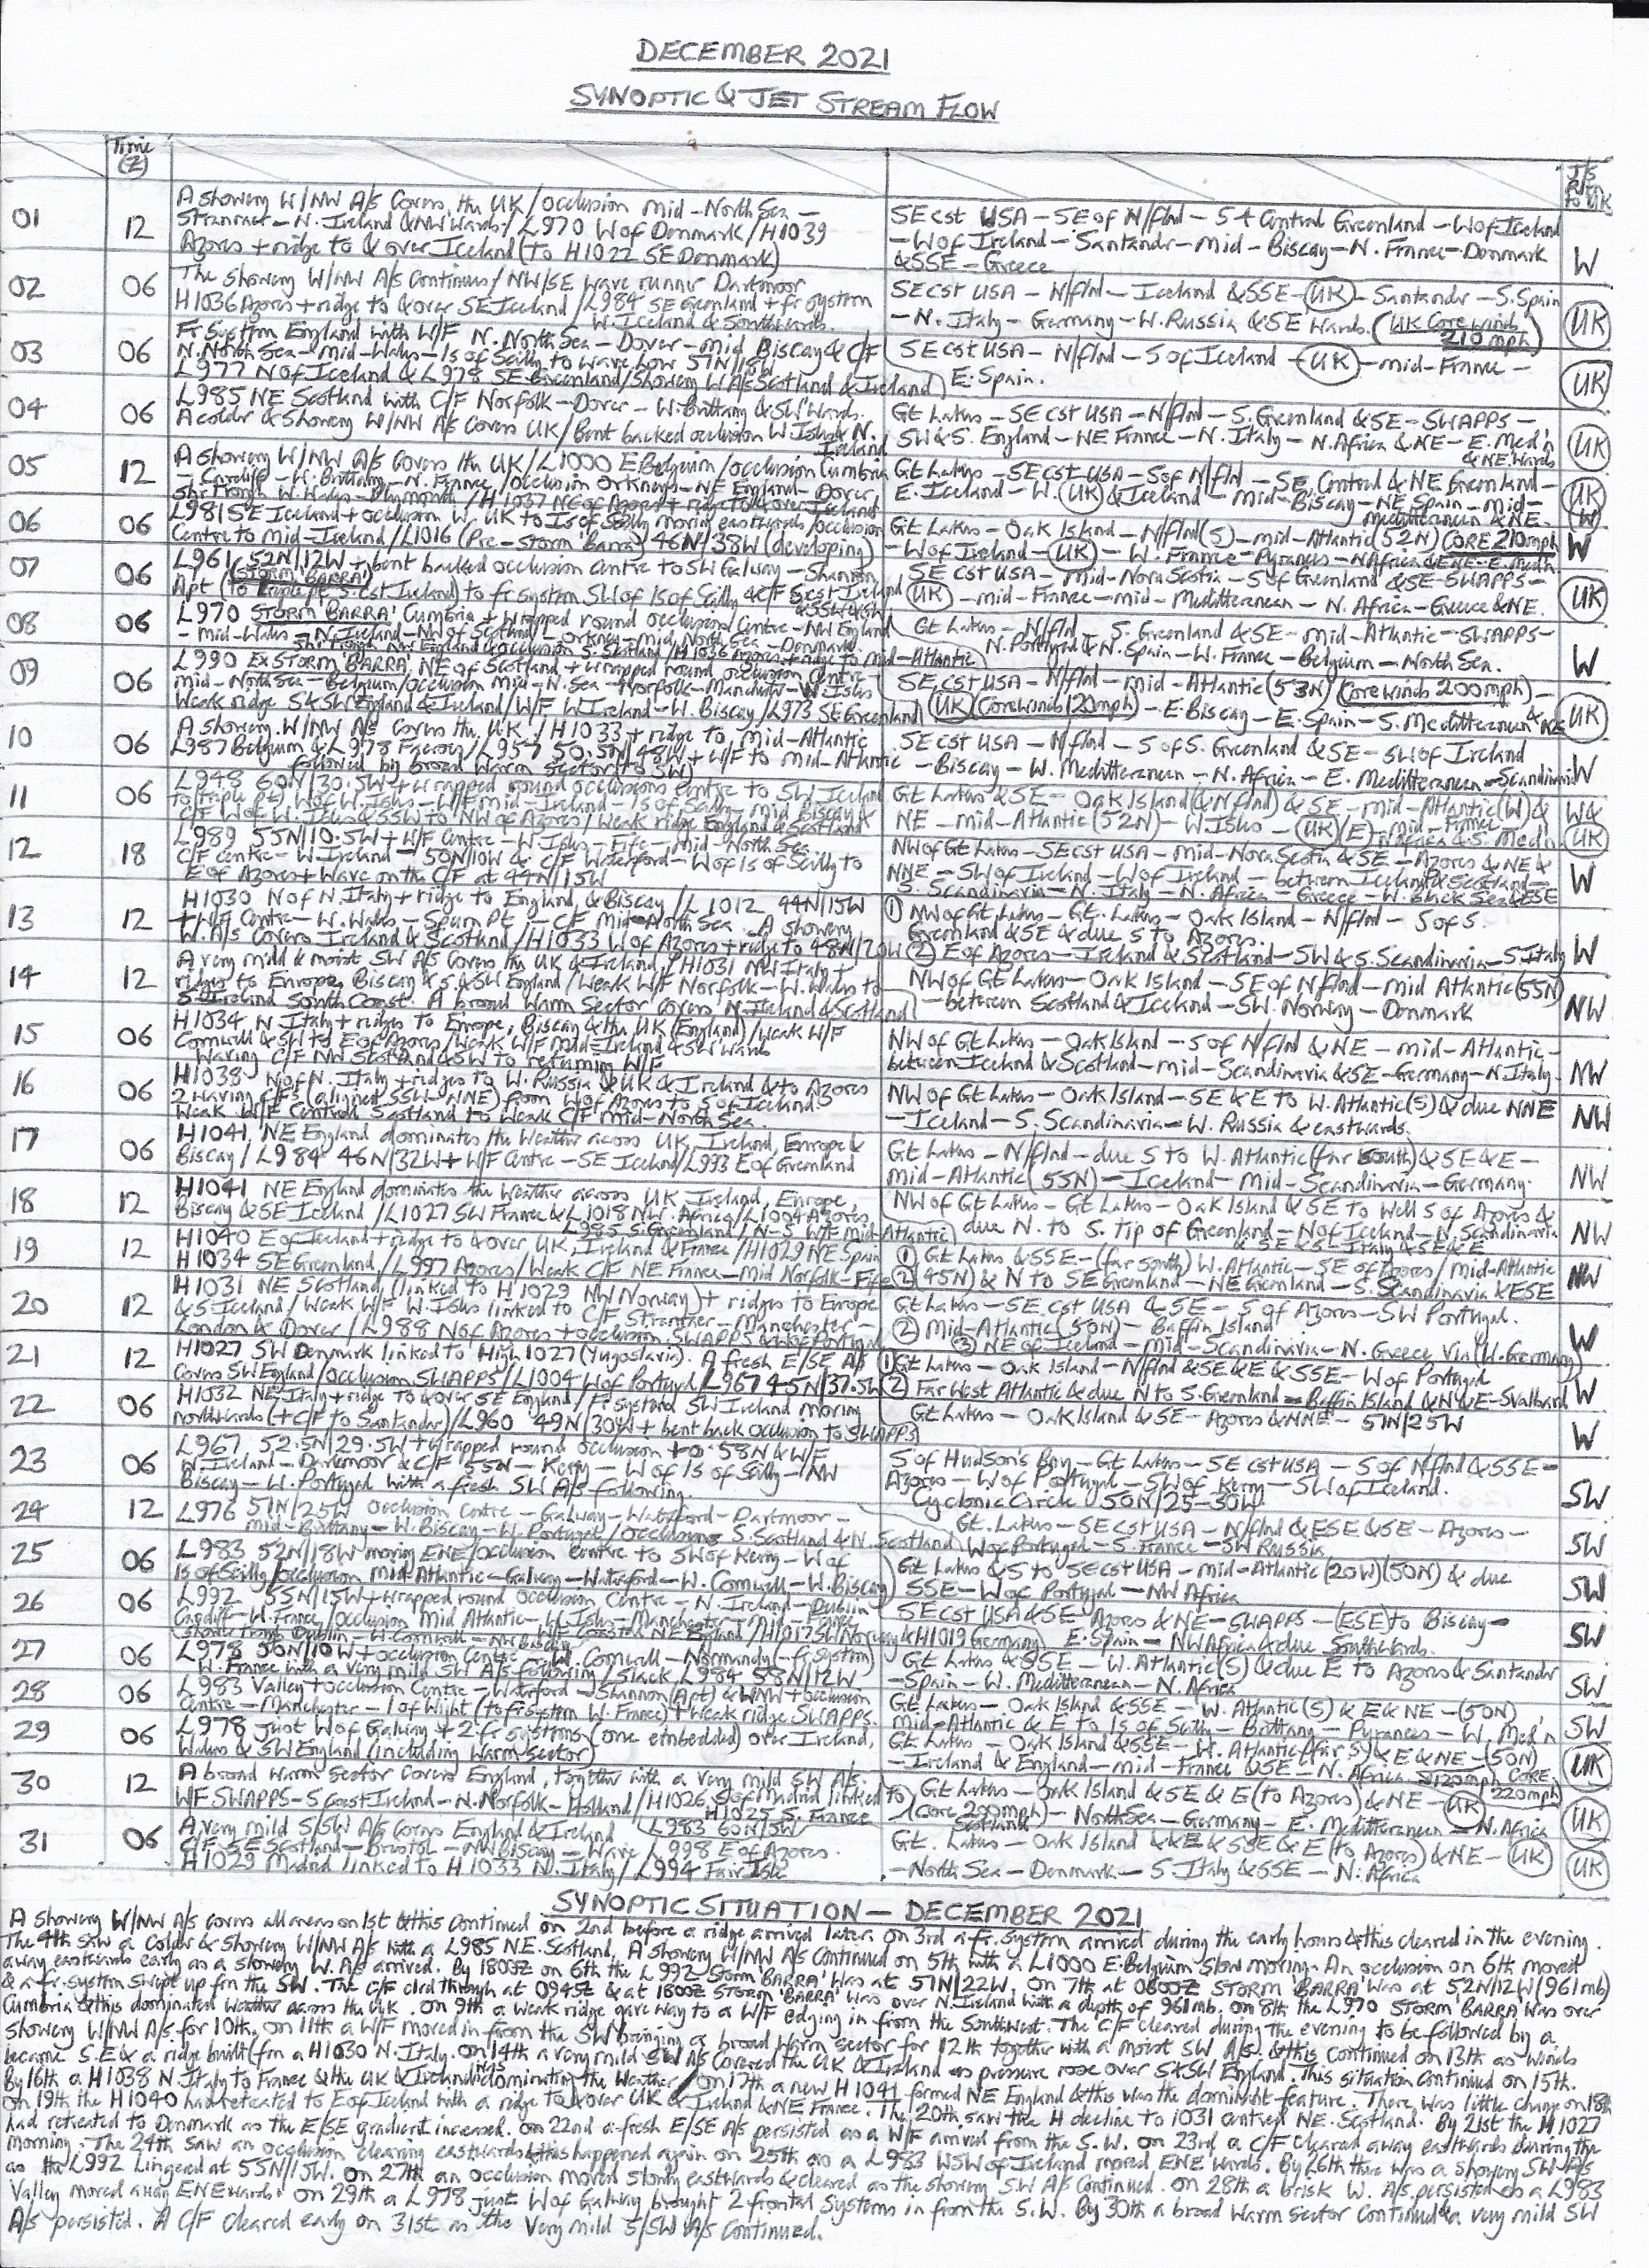 DECEMBER 2021
SYNOPTIC & JET STREAM FLOW
Time (Z)
J/S Rltn to UK
01
12
A showery W/NW A/S covers the UK/occlusion mid-North Sea-
Stranraer-N. Ireland & NW wards/L970 W of Denmark/H1039
Azores + ridge to & over Iceland (to H1022 SE Denmark)
SE cst USA - SE of N/flnd - S & Central Greenland - W of Iceland
- W of Ireland - Santander - mid-Biscay - N. France - Denmark
& SSE - Greece
W
02
06
The showery W/NW A/S continues/NW/SE wave runner Dartmoor
H1036 Azores + ridge to & over SE Iceland/L984 SE Greenland + fr system
W. Iceland & Southwards.
SE cst USA - N/flnd - Iceland & SSE - UK - Santander - S. Spain
- N. Italy - Germany - W. Russia & SE wards. (UK Core winds
210 mph)
UK
03
06
Fr system England with W/F N. North Sea - Dover - mid Biscay & C/F
N. North Sea - mid-Wales - Is of Scilly to wave low 51N/15W
L977 N of Iceland & L978 SE Greenland/Showery W A/S Scotland & Ireland
SE cst USA - N/flnd - S of Iceland - UK - mid-France -
E. Spain.
UK
04
06
L985 NE Scotland with C/F Norfolk - Dover - W. Brittany & SW wards.
A colder & showery W/NW A/S covers UK/Bent backed occlusion W. Isles & N.
Ireland
Gt Lakes - SE cst USA - N/flnd - S. Greenland & SE - SWAPPS -
SW & S. England - NE France - N. Italy - N. Africa & NE - E. Med'n
& NE wards
UK
05
12
A showery W/NW A/S covers the UK/L1000 E Belgium/occlusion Cumbria
- Cardiff - W. Brittany - N. France/occlusion Orkneys - NE England - Dover
Shr Trough W. Wales - Plymouth/H1037 NE of Azores + ridge to & over Ireland
Gt Lakes - SE cst USA - S of N/flnd - SE, Central & NE Greenland -
E. Iceland - W. UK & Ireland - mid-Biscay - NE Spain - mid-
Mediterranean & NE.
UK
W
06
06
L981 SE Iceland + occlusion W. UK to Is of Scilly moving eastwards/occlusion
Centre to mid-Ireland/L1016 (Pre-Storm 'Barra') 46N/38W (developing)
Gt Lakes - Oak Island - N/flnd (S) - mid-Atlantic (52N) CORE 210mph
- W of Ireland - UK - W. France - Pyrenees - N Africa & NE - E. Med'n
W
07
06
L961 52N/12W + bent backed occlusion centre to SW Galway - Shannon
(STORM 'BARRA')
Apt (to triple pt S. cst Ireland) to fr system SW of Is of Scilly & C/F S cst Ireland
& SSW wards
SE cst USA - mid-Nova Scotia - S of Greenland & SE - SWAPPS -
UK - mid-France - mid-Mediterranean - N. Africa - Greece & NE.
UK
08
06
L970 STORM 'BARRA' Cumbria + wrapped round occlusion Centre - NW England
- mid-Wales - N. Ireland - NW of Scotland - Orkney - mid North Sea - Denmark.
Shr Trough NW England & occlusion S. Scotland/H1036 Azores + ridge to mid-Atlantic
Gt Lakes - N/flnd - S. Greenland & SE - mid-Atlantic - SWAPPS -
N. Portugal & N. Spain - W. France - Belgium - North Sea.
W
09
06
L990 Ex STORM BARRA NE of Scotland + wrapped round occlusion Centre -
mid-North Sea - Belgium/occlusion mid-N. Sea - Norfolk - Manchester - W. Isles
Weak ridge S & SW England & Ireland/W/F W Ireland - W. Biscay/L973 SE Greenland
SE cst USA - N/flnd - mid-Atlantic (53N) (Core winds 200mph) -
UK (Core winds 120mph) - E. Biscay - E. Spain - S. Mediterranean & NE
UK
10
06
A showery W/NW A/S covers the UK/H1033 + ridge to mid-Atlantic
L987 Belgium & L978 Faeroes/L957 50.5N/48W + W/F to mid-Atlantic
followed by broad warm sector (to SW)
SE cst USA - N/flnd - S of S. Greenland & SE - SW of Ireland
- Biscay - W. Mediterranean - N. Africa - E. Mediterranean - Scandinavia
W
11
06
L948 60N/30.5W + wrapped round occlusions centre to SW Iceland
(to triple pt) W of W. Isles - W/F mid-Ireland - Is of Scilly - mid Biscay &
C/F W of W. Isles & SSW to NW of Azores/Weak ridge England & Scotland
Gt Lakes & SE - Oak Island (& N/flnd) & SE - mid-Atlantic (W) &
NE - mid-Atlantic (52N) - W. Isles - UK (E) - mid-France -
N. Africa & S. Med'n
W &
UK
12
18
L989 55N/10.5W + W/F Centre - W. Isles - Fife - mid-North Sea
C/F centre - W. Ireland - 50N/10W & C/F Waterford - W of Is of Scilly to
E of Azores + Wave on the C/F at 44N/15W
NW of Gt Lakes - SE cst USA - mid-Nova Scotia & SE - Azores & NE &
NNE - SW of Ireland - W of Ireland - between Iceland & Scotland -
S. Scandinavia - N. Italy - N. Africa - Greece - W. Black Sea & ESE
W
13
12
H1030 N of N. Italy + ridge to England, & Biscay/L1012 44N/15W
+ W/F Centre - W. Wales - Spurn Pt - C/F mid-North Sea. A showery
W. A/S covers Ireland & Scotland/H1033 W of Azores + ridge to 48N/20W
① NW of Gt Lakes - Gt. Lakes - Oak Island - N/flnd - S of S.
Greenland & SE & due S to Azores.
② E of Azores - Ireland & Scotland - SW & S. Scandinavia - S Italy
W
14
12
A very mild & moist SW A/S covers the UK & Ireland/H1031 NW Italy +
ridges to Europe, Biscay & S & SW England/Weak W/F Norfolk - W. Wales to
S. Ireland South Coast. A broad Warm Sector covers N. Ireland & Scotland
NW of Gt Lakes - Oak Island - SE of N/flnd - mid Atlantic (55N)
- between Scotland & Iceland - SW. Norway - Denmark
NW
15
06
H1034 N Italy + ridges to Europe, Biscay & the UK (England)/Weak W/F
Cornwall & SW to E of Azores/Weak W/F mid-Ireland & SW wards
Waving C/F NW Scotland & SW to returning W/F
NW of Gt Lakes - Oak Island - S of N/flnd & NE - mid-Atlantic -
between Iceland & Scotland - mid-Scandinavia & SE - Germany - N Italy.
NW
16
06
H1038 N of N. Italy + ridges to W. Russia & UK & Ireland & to Azores
2 waving C/Fs (aligned SSW-NNE) from W of Azores to S of Iceland.
Weak W/F Central Scotland to Weak C/F mid-North Sea.
NW of Gt Lakes - Oak Island - SE & E to W. Atlantic (S) & due NNE
- Iceland - S. Scandinavia - W. Russia & eastwards.
NW
17
06
H1041 NE England dominates the weather across UK, Ireland, Europe &
Biscay/L984 46N/32W + W/F Centre - SE Iceland/L993 E of Greenland
Gt Lakes - N/flnd - due S to W. Atlantic (far South) & SE & E -
mid-Atlantic (55N) - Iceland - mid-Scandinavia - Germany.
NW
18
12
H1041 NE England dominates the weather across UK, Ireland, Europe,
Biscay & SE Iceland/L1027 SW France & L1018 NW. Africa/L1004 Azores
L985 S. Greenland/N-S W/F mid-Atlantic
NW of Gt Lakes - Gt Lakes - Oak Island & SE to Well S of Azores &
due N. to S. tip of Greenland - N of Iceland - N. Scandinavia
& SE & S - Italy & SE & E
NW
19
12
H1040 E of Iceland + ridge to & over UK, Ireland & France/H1029 NE Spain
H1034 SE Greenland/L997 Azores/Weak C/F NE France - Mid Norfolk - Fife
① Gt Lakes & SSE - (far south) W. Atlantic - SE of Azores/mid-Atlantic
② (45N) & N to SE Greenland - NE Greenland - S. Scandinavia & ESE
NW
20
12
H1031 NE Scotland, (linked to H1029 NW Norway) + ridges to Europe
& S Iceland/Weak W/F W. Isles linked to C/F Stranraer - Manchester -
London & Dover/L988 N of Azores + occlusion SWAPPS & W of Portugal
Gt Lakes - SE cst USA & SE - S of Azores - SW Portugal.
② Mid-Atlantic (50N) - Baffin Island
③ NE of Iceland - mid-Scandinavia - N. Greece Via (W. Germany)
W
21
12
H1027 SW Denmark linked to High 1027 (Yugoslavia). A fresh E/SE A/S
covers SW England/occlusion SWAPPS/L1004 W of Portugal/L967 45N/37.5W
① Gt Lakes - Oak Island - N/flnd & SE & E & SSE - W of Portugal
② Far West Atlantic & due N to S. Greenland - Baffin Island & N & E - Svalbard
W
22
06
H1032 NE Italy + ridge to & over SE England/Fr. system SW Ireland moving
northwards (+ C/F to Santander)/L960 49N/30W + bent back occlusion to SWAPPS
Gt Lakes - Oak Island & SE - Azores & NNE - 51N/25W
W
23
06
L967 52.5N/29.5W + wrapped round occlusion to 58N & W/F
W. Ireland - Dartmoor & C/F 55N - Kerry - W of Is of Scilly - NW
Biscay - W. Portugal with a fresh SW A/S following.
S of Hudson's Bay - Gt Lakes - SE cst USA - S of N/flnd & SSE -
Azores - W of Portugal - SW of Kerry - SW of Iceland.
Cyclonic Circle 50N/25-30W
SW
24
12
L976 51N/25W occlusion Centre - Galway - Waterford - Dartmoor -
mid-Brittany - W. Biscay - W. Portugal/occlusions S. Scotland & N. Scotland
Gt. Lakes - SE cst USA - N/flnd & ESE & SE - Azores -
W of Portugal - S. France - SW Russia
SW
25
06
L983 52N/18W moving ENE/occlusion centre to SW of Kerry - W of
Is of Scilly/occlusion mid-Atlantic - Galway - Waterford - W. Cornwall - W. Biscay
Gt Lakes & S to SE cst USA - mid-Atlantic (20W)(50N) & due
SSE - W of Portugal - NW Africa
SW
26
06
L992 55N/15W + wrapped round occlusion Centre - N. Ireland - Dublin
Cardiff - W. France/occlusion Mid Atlantic - W. Isles - Manchester - Mid-France
(Shower trough Dublin - W. Cornwall - NW Biscay W/F coastal NE England/H1017 SW Norway & H1019 Germany
SE cst USA & SE Azores & NE - SWAPPS - (ESE) to Biscay -
E. Spain - NW Africa & due Southwards.
SW
27
06
L978 50N/10W + occlusion Centre - W. Cornwall - Normandy (- fr. System)
W. France with a very mild SW A/S following/Slack L984 58N/12W
Gt Lakes & SSE - W. Atlantic (S) & due E to Azores & Santander
- Spain - W. Mediterranean - N. Africa
SW
28
06
L983 Valley + occlusion Centre - Waterford - Shannon (Apt) & WNW + occlusion
Centre - Manchester - I of Wight (to fr system W. France) + Weak ridge SWAPPS.
Gt Lakes - Oak Island & SSE - W. Atlantic (S) & E & NE - (50N)
mid-Atlantic & E to Is of Scilly - Brittany - Pyrenees - W. Med'n
SW
29
06
L978 just W of Galway + 2 fr systems (one embedded) over Ireland,
Wales & SW England (including warm sector)
Gt Lakes - Oak Island & SSE - W. Atlantic (far S) & E & NE - (50N)
- Ireland & England - mid-France & SE - N. Africa 120mph CORE.
UK
30
12
A broad warm sector covers England, together with a very mild SW A/S.
WF SWAPPS - S Coast Ireland - N. Norfolk - Holland/H1026 S of Madrid linked to
H1025 S. France
L983 60N/5W
Gt Lakes - Oak Island & SE & E (to Azores) & NE - UK 220mph)
(Core 200mph) - North Sea - Germany - E. Mediterranean - N. Africa
Scotland
UK
31
06
A very mild S/SW A/S covers England & Ireland
C/F SE Scotland - Bristol - NW Biscay - Wave L998 E of Azores.
H1029 Madrid linked to H1033 N. Italy/L994 Fair Isle
Gt. Lakes - Oak Island & E & SSE & E (to Azores) & NE - UK
- North Sea - Denmark - S. Italy & SSE - N. Africa
UK
SYNOPTIC SITUATION - DECEMBER 2021
A showery W/NW A/S covers all areas on 1st & this continued on 2nd before a ridge arrived later. on 3rd a fr. system arrived during the early hours & this cleared in the evening.
The 4th saw a colder & showery W/NW A/S with a L985 NE. Scotland. A showery W/NW A/S continued on 5th with a L1000 E. Belgium slow moving. An occlusion on 6th moved
away eastwards early as a showery W. A/S arrived. By 1800Z on 6th the L992 STORM 'BARRA' was at 51N/22W. On 7th at 0600Z STORM 'BARRA' was at 52N/12W (961mb)
& a fr. system swept up fm the SW. The C/F clrd through at 0945Z & at 1800Z STORM 'BARRA' was over N. Ireland with a depth of 961mb. on 8th the L970 STORM 'BARRA' was over
Cumbria & this dominated weather across the UK. on 9th a weak ridge gave way to a W/F edging in from the Southwest. The C/F cleared during the evening to be followed by a
showery W/NW A/S for 10th. on 11th a W/F moved in from the SW bringing a broad warm sector for 12th together with a moist SW A/S. & this continued on 13th as winds
became S.E & a ridge built (fm a H1030 N. Italy. on 14th a very mild SW A/S covered the UK & Ireland as pressure rose over S & SW England. This situation continued on 15th.
By 16th a H1038 N Italy to France & the UK & Ireland was dominating the weather. On 17th a new H1041 formed NE England & this was the dominant feature. There was little change on 18th
On 19th the H1040 had retreated to E of Iceland with a ridge to & over UK & Ireland & NE France. The 20th saw the H decline to 1031 centred NE. Scotland. By 21st the H1027
had retreated to Denmark as the E/SE gradient increased. on 22nd a fresh E/SE A/S persisted as a W/F arrived from the S.W. on 23rd a C/F cleared away eastwards during the
morning. The 24th saw an occlusion clearing eastwards & this happened again on 25th as a L983 WSW of Ireland moved ENE wards. By 26th there was a showery SW A/S
as the L992 lingered at 55N/15W. on 27th an occlusion moved slowly eastwards & cleared as the showery SW A/S continued. on 28th a brisk W. A/S persisted as a L983
Valley moved away ENE wards. on 29th a L978 just W of Galway brought 2 frontal systems in from the S.W. By 30th a broad warm sector continued & a very mild SW
A/S persisted. A C/F cleared early on 31st as the very mild S/SW A/S continued.